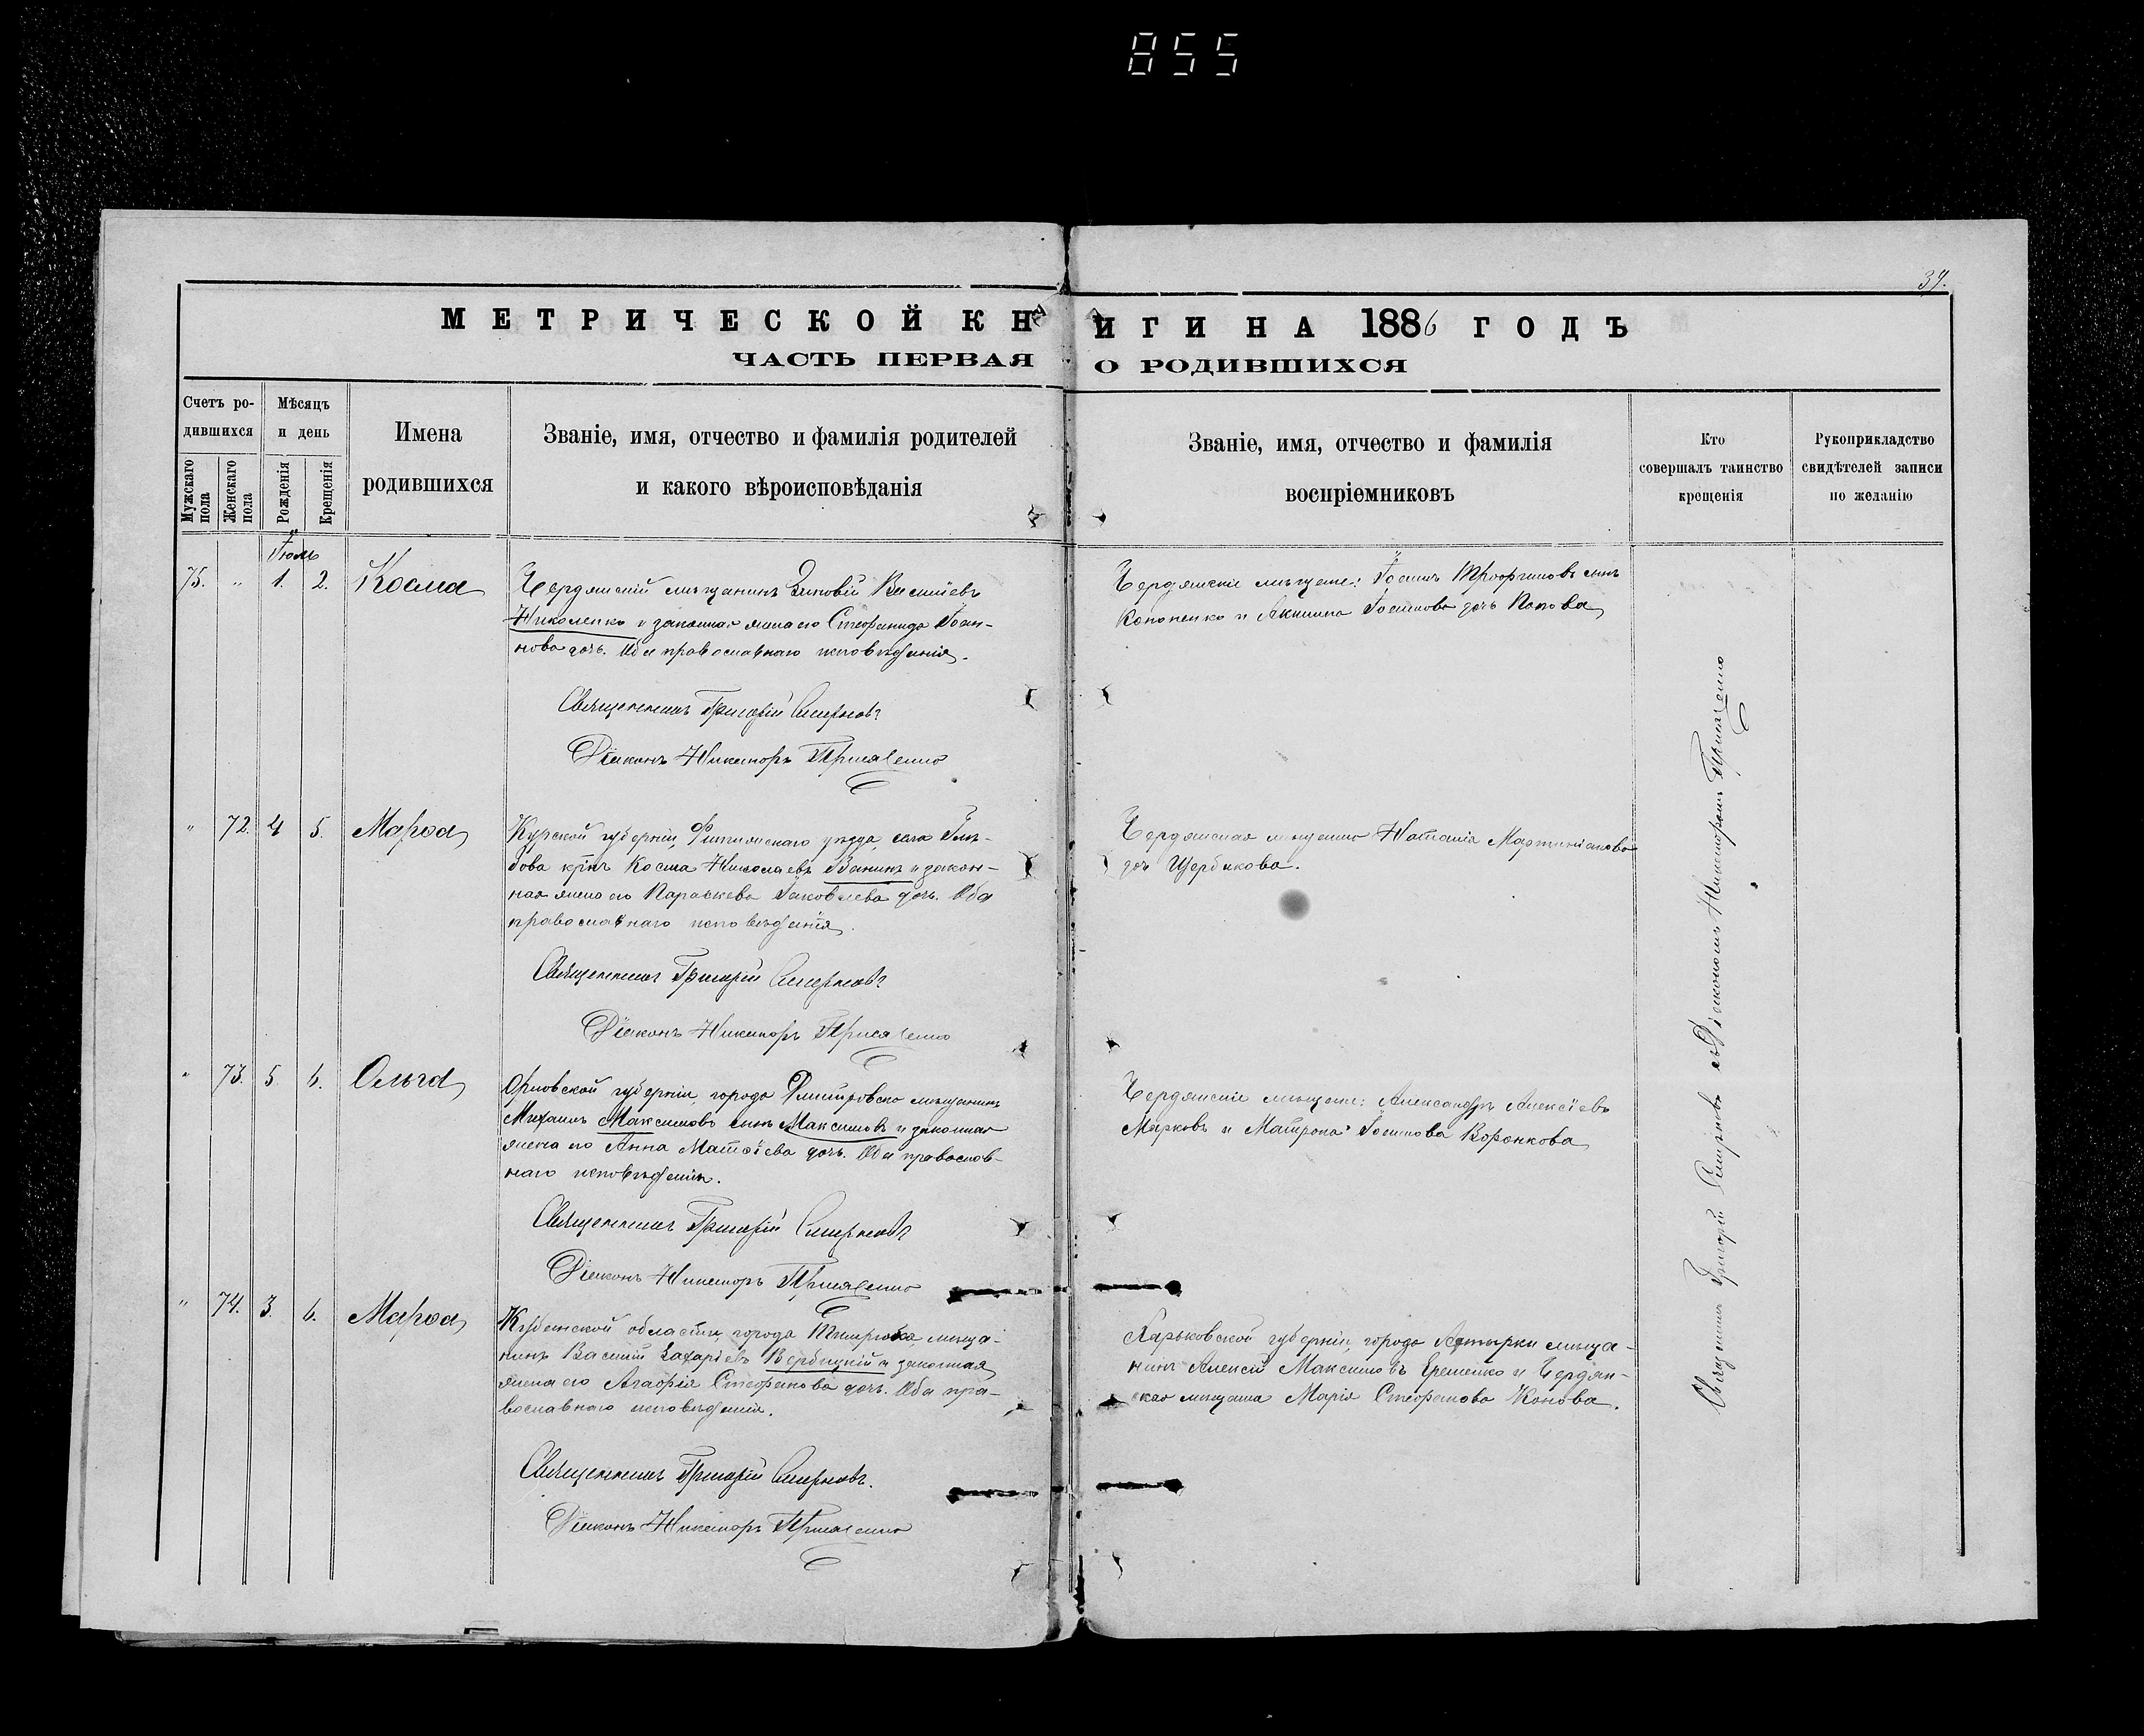 855
34.
МЕТРИЧЕСКОЙ КНИГИ НА 1886 ГОДЪ
ЧАСТЬ ПЕРВАЯ О РОДИВШИХСЯ
Счетъ родившихся
Мужскаго пола
Женскаго пола
Мѣсяцъ и день
Рожденія
Крещенія
Имена родившихся
Званіе, имя, отчество и фамилія родителей
и какого вѣроисповѣданія
Званіе, имя, отчество и фамилія
воспріемниковъ
Кто
совершалъ таинство
крещенія
Рукоприкладство
свидѣтелей записи
по желанію
Іюль
75. " 1. 2. Косма
Бердянскій мѣщанинъ Зиновій Василіевъ
Николенко и законная жена его Стефанида Іоан-
нова дочь. Оба православнаго исповѣданія.
Священникъ Григорій Смирновъ
Діаконъ Никаноръ
Бердянскіе мѣщане: Іоаннъ Трофимовъ сынъ
Кононенко и Акилина Іоаннова дочь Попова
" 72. 4 5. Марѳа
Курской губерніи, уѣзда, села
бова кр̃нъ Косма Николаевъ Ванинъ и закон-
ная жена его Параскева Іаковлева дочь. Оба
православнаго исповѣданія.
Священникъ Григорій Смирновъ
Діаконъ Никаноръ
Бердянская мѣщанка Наталія Мартиніанова
дочь Щербакова.
" 73. 5. 6. Ольга
Орловской губерніи, города Дмитровска мѣщанинъ
Михаилъ Максимовъ сынъ Максимовъ и законная
жена его Анна Матѳіева дочь. Оба православ-
наго исповѣданія.
Священникъ Григорій Смирновъ
Діаконъ Никаноръ
Бердянскіе мѣщане: Александръ Алексіевъ
Марковъ и Матрона Іоаннова Воронкова
" 74. 3. 6. Марѳа
Кубанской области, города Темрюка, мѣща-
нинъ Василій Захаріевъ Вербицкій и законная
жена его Агаѳія Стефанова дочь. Оба пра-
вославнаго исповѣданія.
Священникъ Григорій Смирновъ.
Діаконъ Никаноръ
Харьковской губерніи, города Ахтырки мѣща-
нинъ Алексій Максимовъ Еременко и Бердян-
ская мѣщанка Марія Стефанова Конова.
Священникъ Григорій Смирновъ съ Діакономъ Никаноромъ